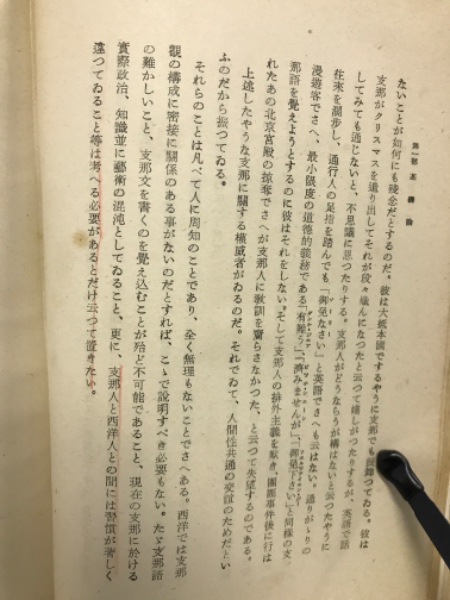 第一部 基礎論
ないことが如何にも殘念だとするのだ。彼は大抵本國でするやうに支那でも振舞つてゐる。彼は
支那がクリスマスを遣り出してそれが段々盛んになつたと云つて嬉しがつたりするが、英語で話
してみても通じないと、不思議に思つたりする。支那人がどうならうが構はないと云つたやうに
往來を濶步し、通行人の足指を踏んでも「御免なさい」と英語でさへも云はない。通りがゝりの
漫遊客でさへ、最小限度の道德的義務である「有難う」、「濟みませんが」、「御免下さい」と同樣の支
那語を覺えようとするのに彼はそれをしない。そして支那人の排外主義を歎き、團匪事件後に行は
れたあの北京宮殿の掠奪でさへが支那人に敎訓を齎らさなかつた、と云つて失望するのである。
上述したやうな支那に關する權威者がゐるのだ。それでゐて、人間性共通の交誼のためだとい
ふのだから振つてゐる。
それらのことは凡べて人に周知のことであり、全く無理もないことでさへある。西洋では支那
觀の構成に密接に關係のある事がないのだとすれば、こゝで說明すべき必要もない。たゞ支那語
の難かしいこと、支那文を書くのを覺え込むことが殆ど不可能であること、現在の支那に於ける
實際政治、知識並に藝術の混沌としてゐること、更に、支那人と西洋人との間には習慣が著しく
違つてゐること等は考へる必要があるとだけ云つて置きたい。